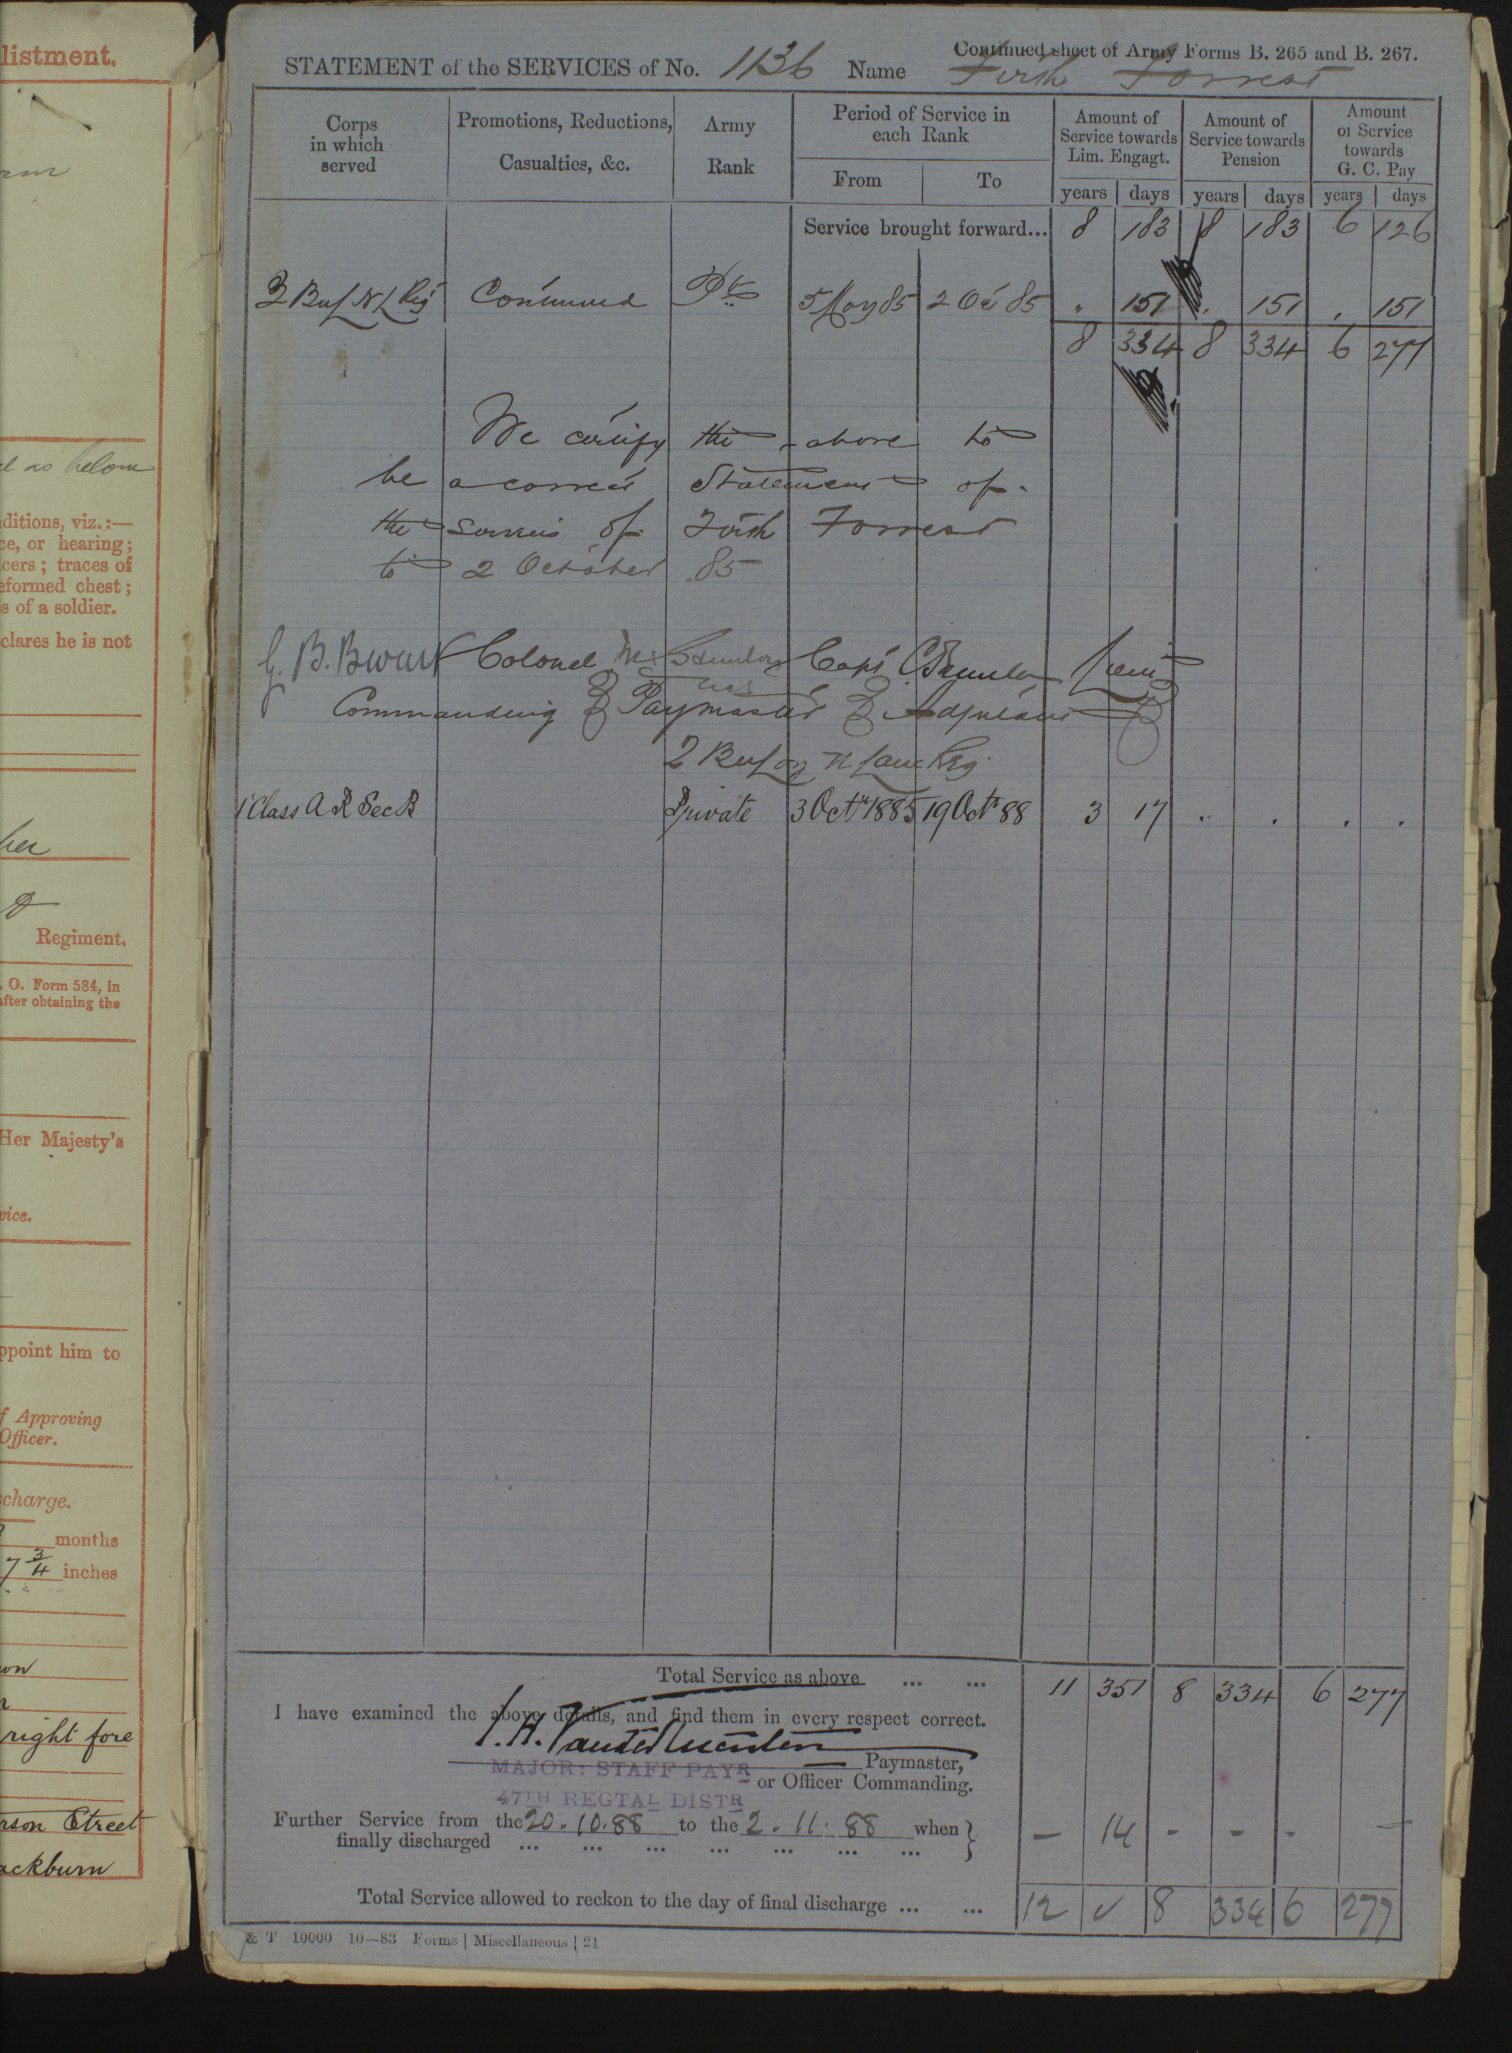 listment.
el as below
ditions, viz.:—
ce, or hearing;
cers; traces of
eformed chest;
s of a soldier.
clares he is not
her
Regiment.
. O. Form 584, in
after obtaining the
Her Majesty's
vice.
ppoint him to
f Approving
Officer.
scharge.
months
7 3/4 inches
right fore
rson Street
ackburn
Continued sheet of Army Forms B. 265 and B. 267.
STATEMENT of the SERVICES of No. 1136 Name Firth Forrest
Corps in which served | Promotions, Reductions, Casualties, &c. | Army Rank | Period of Service in each Rank | Amount of Service towards Lim. Engagt. | Amount of Service towards Pension | Amount of Service towards G. C. Pay
From | To | years | days | years | days | years | days
Service brought forward... 8 183 8 183 6 126
2 Bn L N L Reg Continued Pte 5 May 85 2 Oct 85 " 151 . 151 . 151
8 334 8 334 6 277
We certify the above to
be a correct Statement of
the services of Firth Forrest
to 2 October 85
Colonel Capt Lieut
Commanding Paymaster Adjutant
2 Bn Loy N Lanc Reg
1 Class A R Sec B Private 3 Octr 1885 19 Octr 88 3 17 . . . .
Total Service as above ... ... 11 351 8 334 6 277
I have examined the above details, and find them in every respect correct.
Paymaster,
MAJOR: STAFF PAYR
or Officer Commanding.
47TH REGTAL DISTR
Further Service from the 20.10.88 to the 2.11.88 when
finally discharged ... ... ... ... ... ... ... — 14 - - - -
Total Service allowed to reckon to the day of final discharge ... ... 12 ✓ 8 334 6 277
& T 10000 10—83 Forms | Miscellaneous | 21